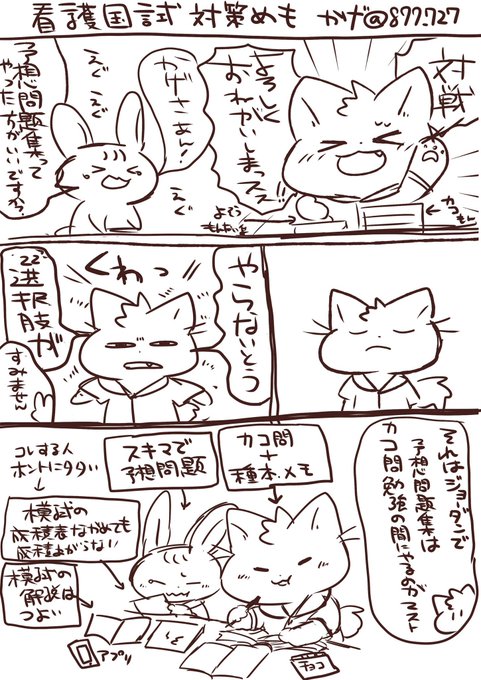 看護国試 対策めも かげ@877.727
対戦
よろしく
おねがいしまっスス!!
かげさぁん!
えぐ
えぐ
えぐ
予想問題集って
やった方がいいですか?
よそう
もんだいを
←カコもん
やらないとう
くわっ
選択肢が
すみません
それはジョーダンで
予想問題集は
カコ問勉強の間にやるのがマスト
カコ問
+
種本、メモ
スキマで
予想問題
コレする人
ホントに多い
模試の
成積表ながめても
成積あがらない
模試の
解説は
つよい
アプリ
チョコ